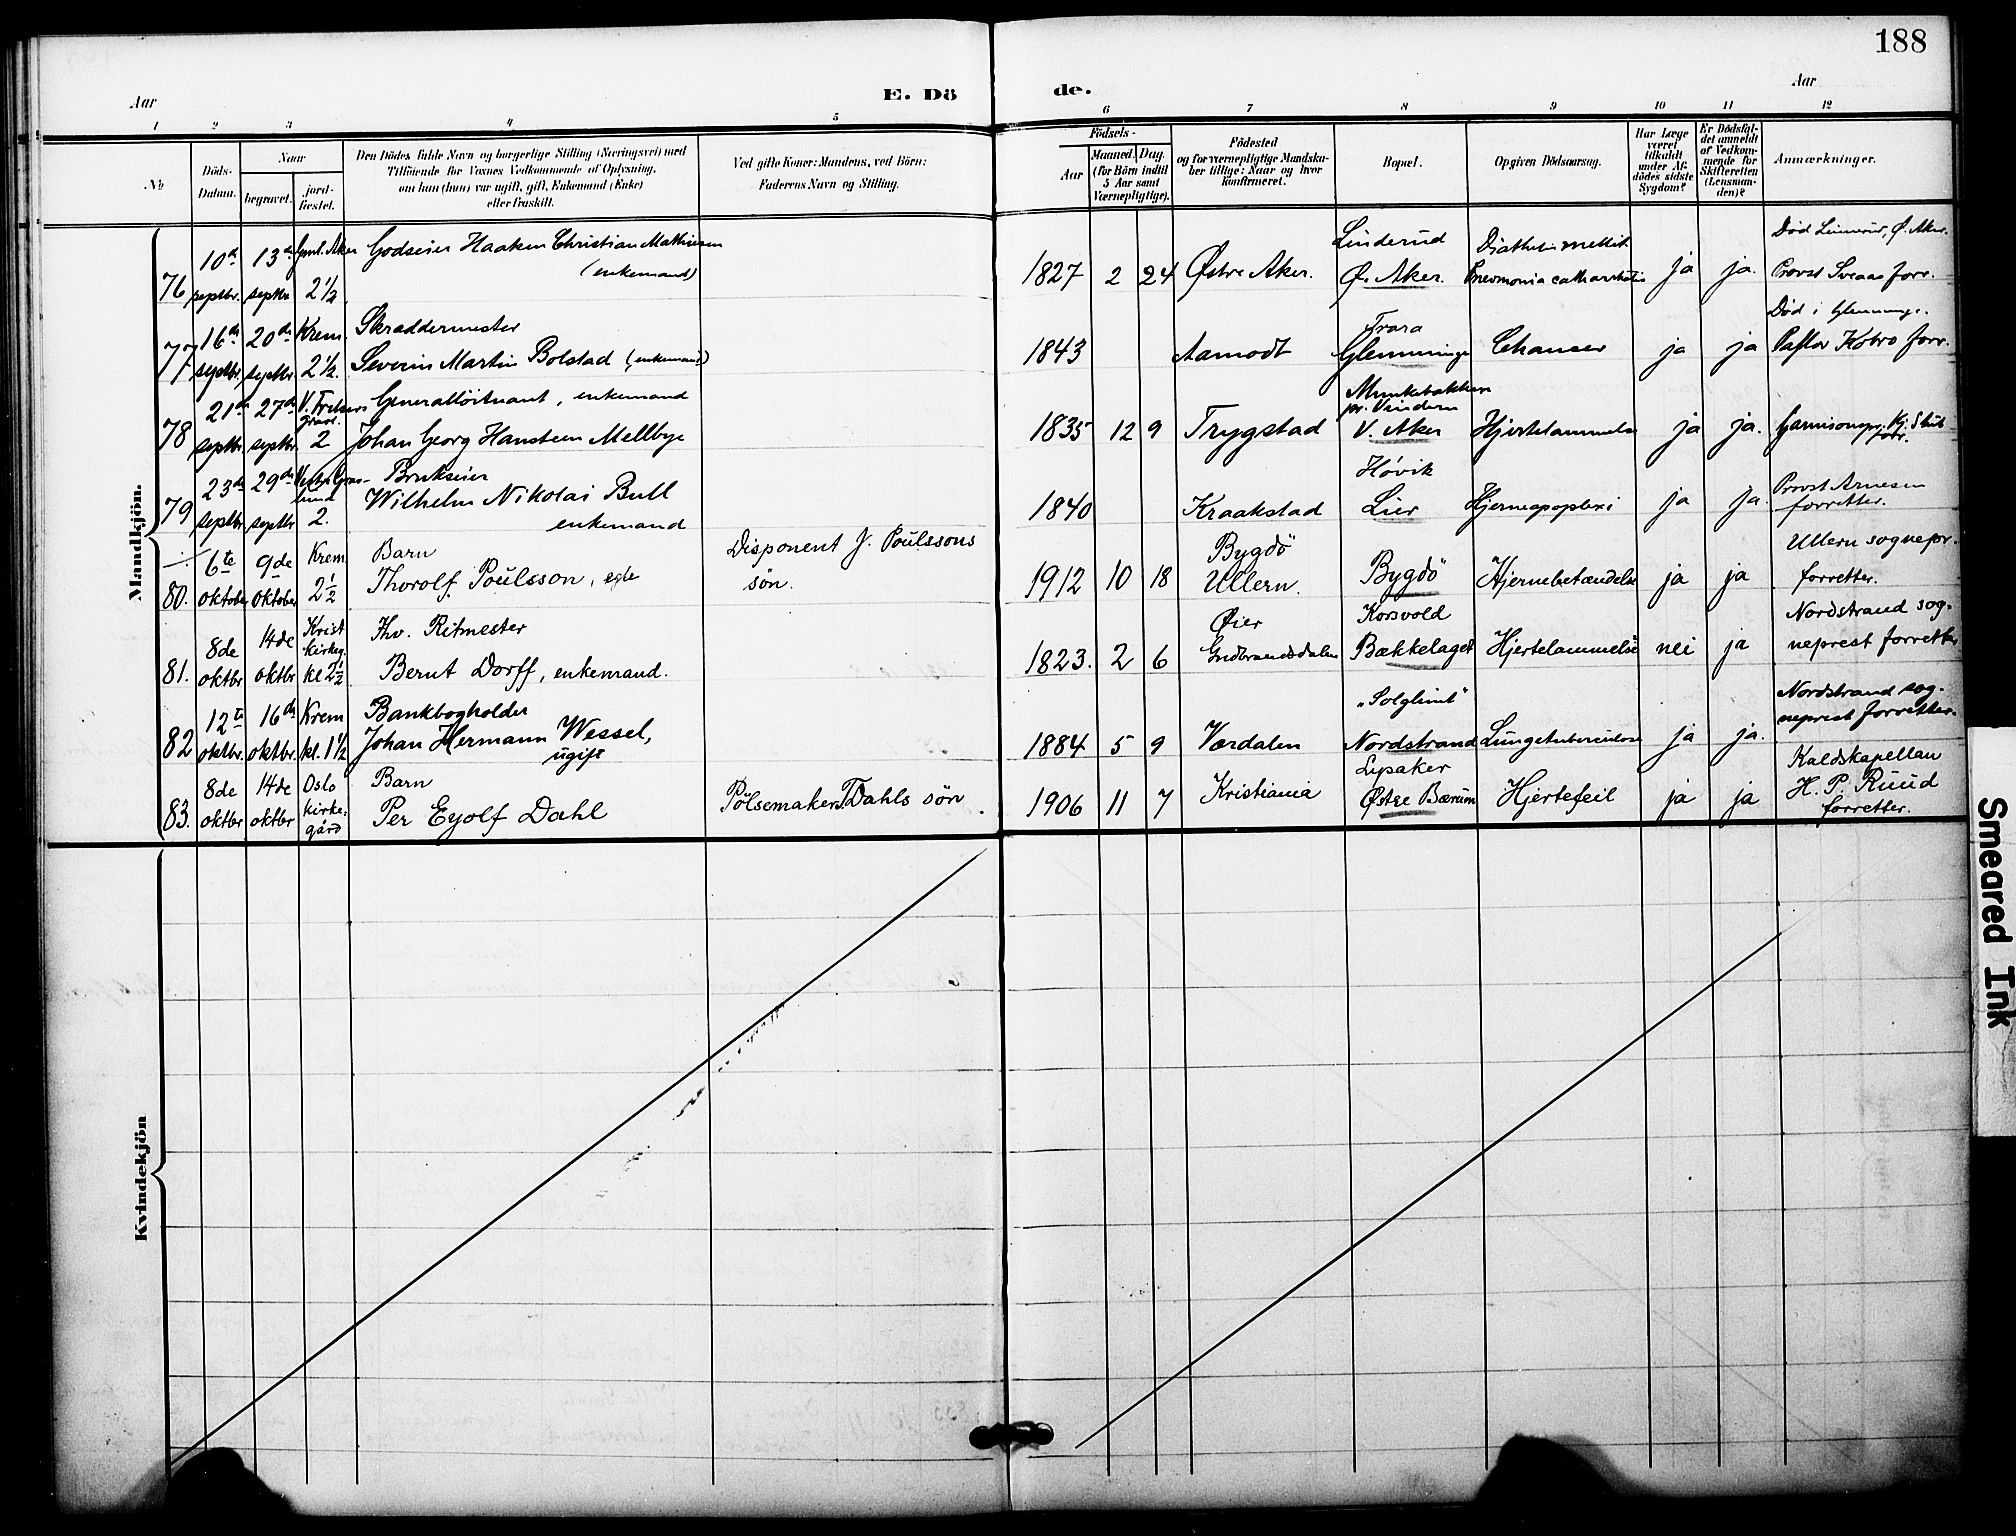 188
Aar
E. Dö
de.
Aar
1 2 3 4 5 6 7 8 9 10 11 12
No
Döds-
Datum.
Naar
begravet.
jord-
fæstet.
Den Dödes fulde Navn og borgerlige Stilling (Næringsvei) med
Tilföiende for Voxnes Vedkommende af Oplysning,
om han (hun) var ugift, gift, Enkemand (Enke)
eller fraskilt.
Ved gifte Koner: Mandens, ved Börn:
Faderens Navn og Stilling.
Födsels-
Aar
Maaned. Dag.
(for Börn indtil
5 Aar samt
Værnepligtige).
Födested
og for værnepligtige Mandska-
ber tillige: Naar og hvor
konfirmeret.
Bopæl.
Opgiven Dödsaarsag.
Har Læge
været
tilkaldt
under Af-
dödes sidste
Sygdom?
Er Dödsfal-
det anmeldt
af Vedkom-
mende for
Skifteretten
(Lensman-
den)?
Anmærkninger.
Mandkjön.
76
10de
septbr.
13de
septbr
Gml. Aker
2 1/2
Godseier Haaken Christian Mathiesen
(enkemand)
1827 2 24
Østre Aker.
Linderud
Ø. Aker.
Pneumonia catharrhalis
ja
ja.
Død Linnerud, Ø. Aker.
Provst Sveaas forr.
77
16de
septbr.
20de
septbr.
Krem.
2 1/2.
Skræddermester
Severin Martin Bolstad (enkemand)
1843
Aamodt
Trara
Glemminge
Chancer
ja
ja
Død i Glemminge.
Pastor Kobro forr.
78
21de
septbr.
27de
septbr
V. Frelsers
Gravl.
2
Generalløitnant, enkemand
Johan Georg Hansteen Mellbye
1835 12 9
Trygstad
Munkebakken
pr. Vindern
V. Aker
Hjertelammelse
ja
ja.
forr.
79
23de
septbr
29de
septbr
2.
Brukseier
Wilhelm Nikolai Bull
enkemand
1840
Kraakstad
Høvik
Lier
Hjerneapoplexi
ja
ja.
Provst Arnesen
forretter.
80.
6te
oktober
9de
oktober
Krem
2 1/2
Barn
Thorolf Poulsson, egte
Disponent J. Poulssons
søn.
1912 10 18
Bygdö
Ullern.
Bygdö
Hjernebetændelse
ja
ja
Ullern sognepr.
forretter.
81.
8de
oktbr
14de
oktbr
Krist
kirkeg.
kl 2 1/2
Khv. Ritmester
Bernt Dorff, enkemand.
1823. 2 6
Øier
Gudbrandsdalen
Korsvold
Bækkelaget
Hjertelammelse
nei
ja
Nordstrand sog-
neprest forretter
82
12te
oktbr.
16de
oktbr.
Krem
kl. 1 1/2
Bankbogholder
Johan Hermann Wessel,
ugift
1884 5 9
Værdalen
"Solglimt"
Nordstrand
Lungetuberculose
ja
ja.
Nordstrand sog-
neprest forretter.
83.
8de
oktbr
14de
oktbr
Oslo
kirke-
gård
Barn
Per Eyolf Dahl
Pölsemaker T. Dahls søn
1906 11 7
Kristiania
Lysaker
Østre Bærum
Hjertefeil
ja
ja
Kaldskapellan
H. P. Ruud
forretter.
Kvindekjön
Smeared Ink